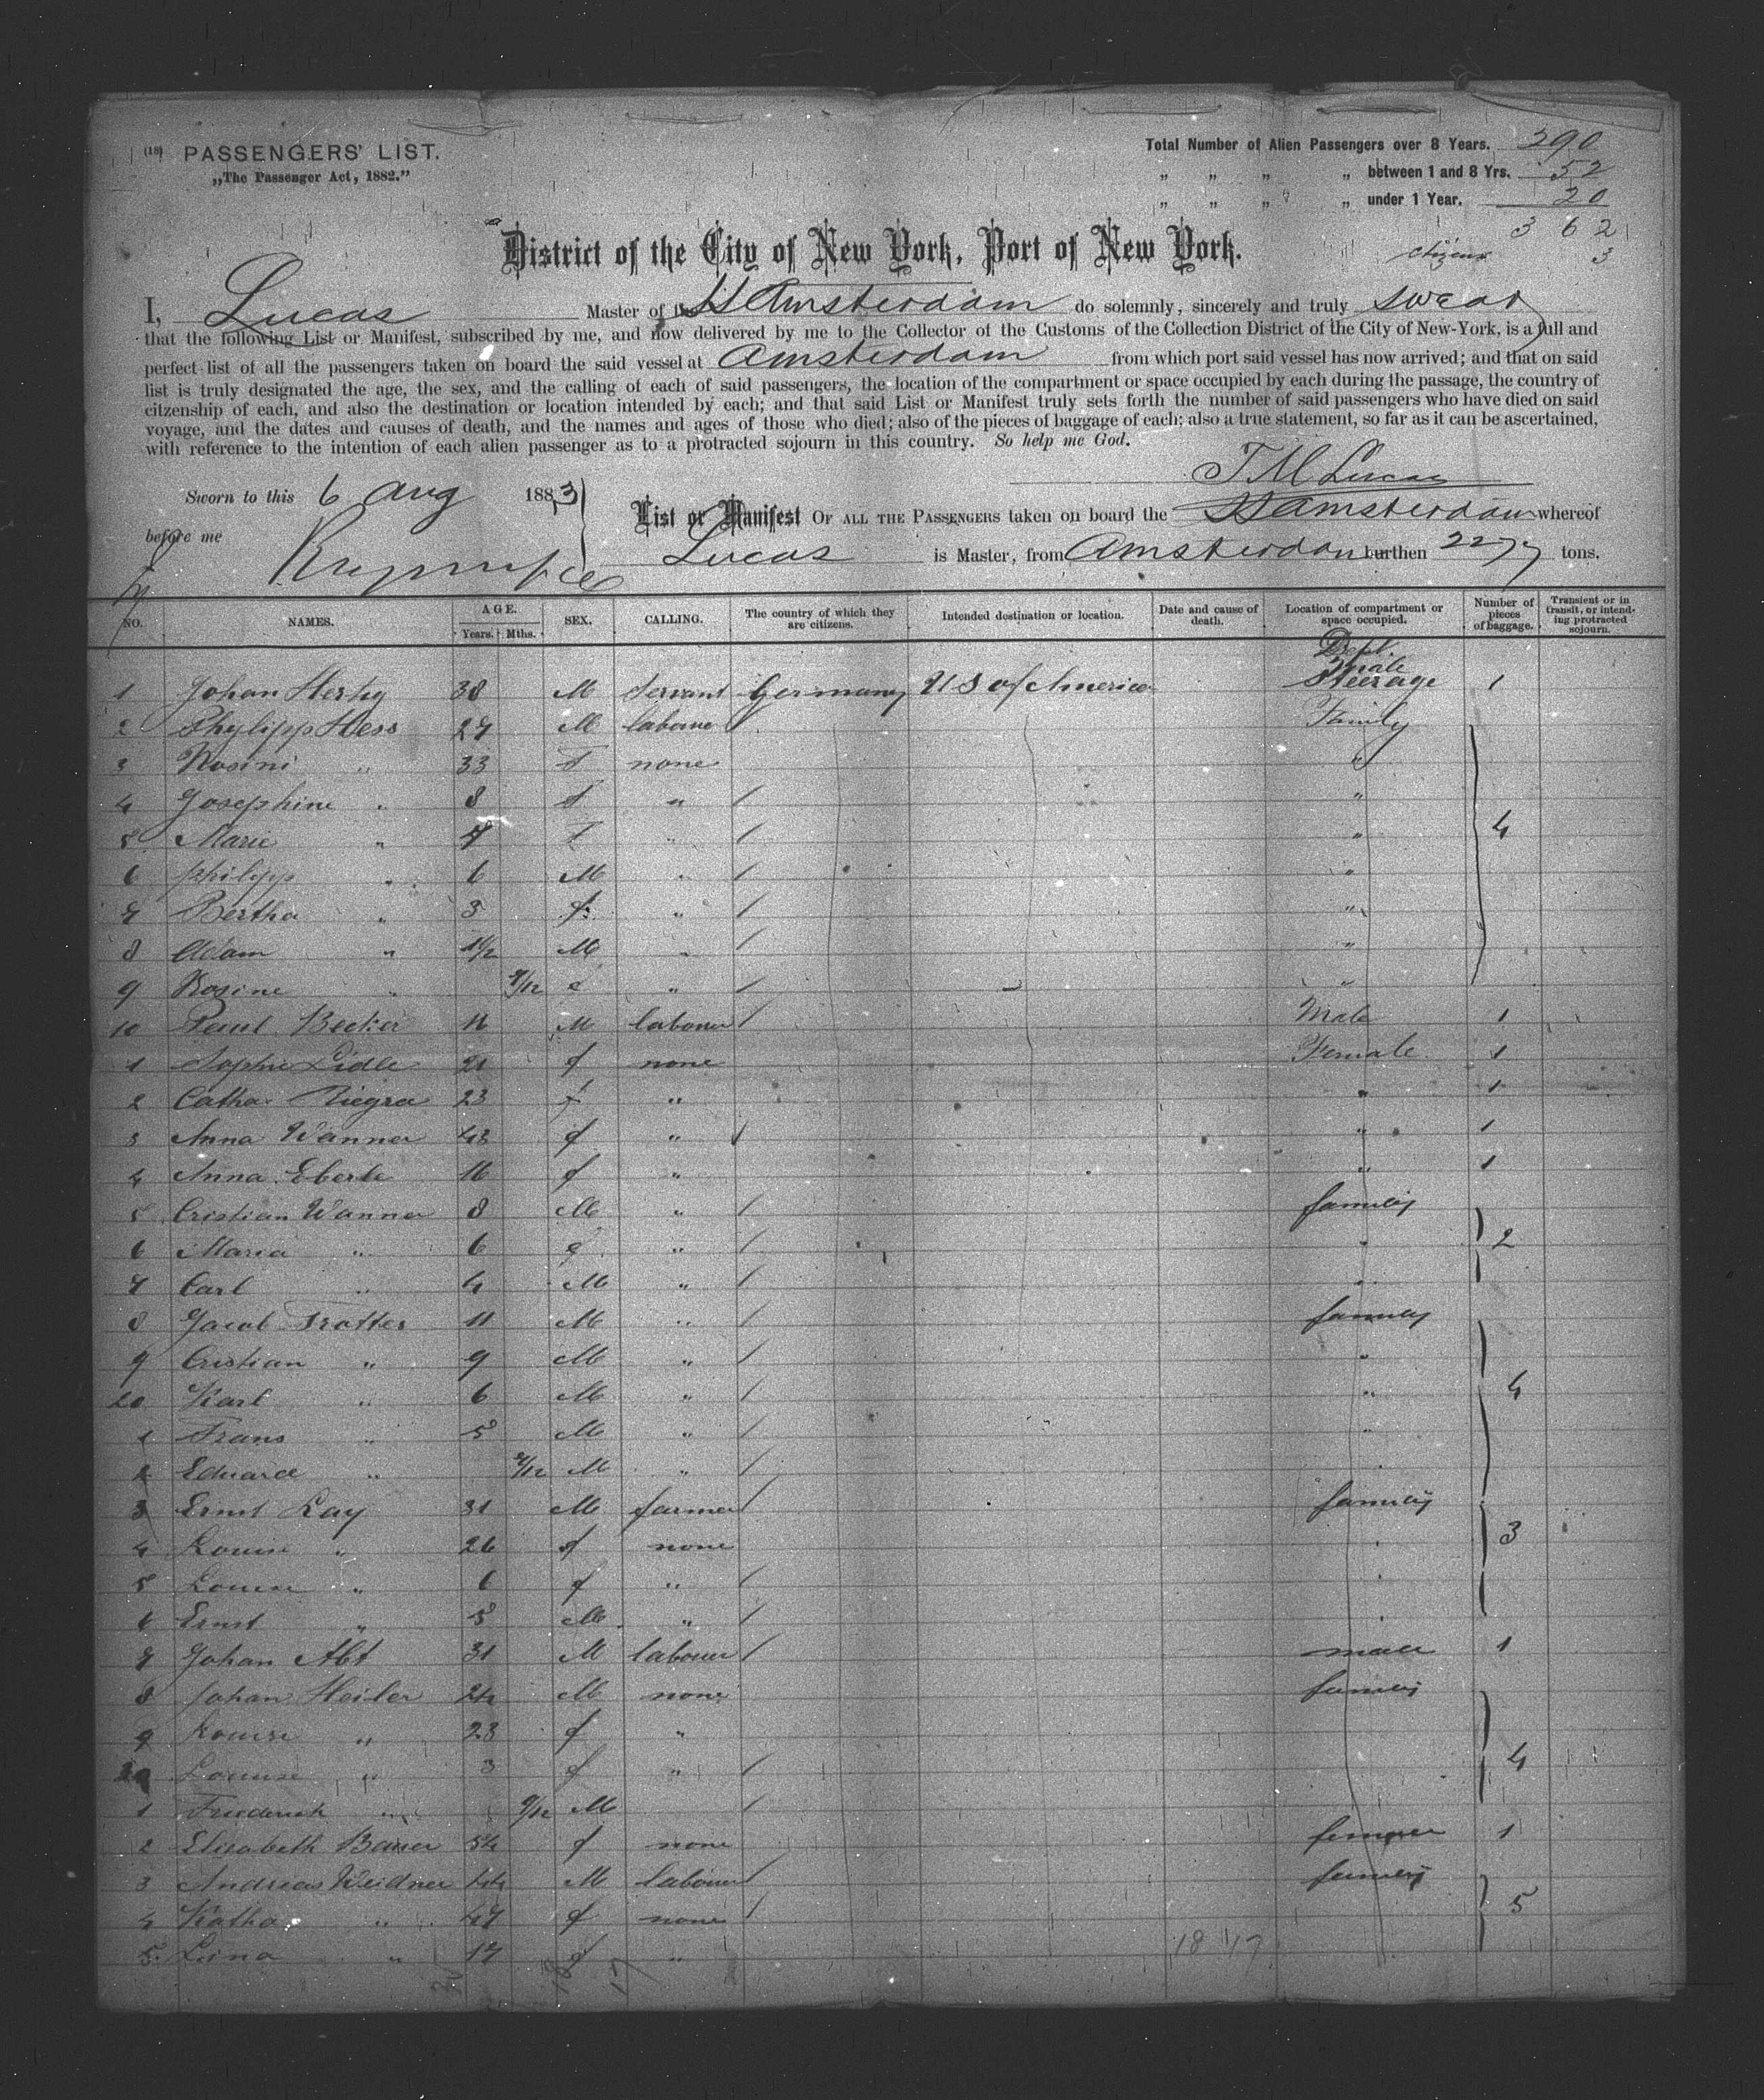 (18) PASSENGERS' LIST.
„The Passenger Act, 1882."
Total Number of Alien Passengers over 8 Years. 290
„ „ „ „ between 1 and 8 Yrs. 52
„ „ „ „ under 1 Year. 20
3 6 2
citizens 3
District of the City of New York, Port of New York.
I, Lucas Master of the SS Amsterdam do solemnly, sincerely and truly swear
that the following List or Manifest, subscribed by me, and now delivered by me to the Collector of the Customs of the Collection District of the City of New-York, is a full and
perfect list of all the passengers taken on board the said vessel at Amsterdam from which port said vessel has now arrived; and that on said
list is truly designated the age, the sex, and the calling of each of said passengers, the location of the compartment or space occupied by each during the passage, the country of
citzenship of each, and also the destination or location intended by each; and that said List or Manifest truly sets forth the number of said passengers who have died on said
voyage, and the dates and causes of death, and the names and ages of those who died; also of the pieces of baggage of each; also a true statement, so far as it can be ascertained,
with reference to the intention of each alien passenger as to a protracted sojourn in this country. So help me God.
Lucas
Sworn to this 6 Aug 1883
before me
List or Manifest OF ALL THE PASSENGERS taken on board the SS Amsterdam whereof
Lucas is Master, from Amsterdam burthen 2277 tons.
NO. NAMES. AGE. Years. Mths. SEX. CALLING. The country of which they are citizens. Intended destination or location. Date and cause of death. Location of compartment or space occupied. Number of pieces of baggage. Transient or in transit, or intending protracted sojourn.
1 Johan Hertig 38 M Servant Germany U S of America Dept. Male Steerage 1
2 Phylipp Hess 27 M labour Family
3 Rosini " 33 F none "
4 Josephine " 8 f " "
5 Marie " 7 F " " 4
6 Philipp " 6 M " "
7 Bertha " 3 f " "
8 Adam " 1 1/2 M " "
9 Rosine " 9/12 f " "
10 Paul Becker 16 M labour Male 1
1 Sophie Lidle 21 f none Female 1
2 Catha. Riegra 23 f " " 1
3 Anna Wanner 43 f " " 1
4 Anna Eberle 16 f " " 1
5 Cristian Wanner 8 M " family
6 Maria " 6 f " " 2
7 Carl " 4 M " "
8 Jacob Trotter 11 M " family
9 Cristian " 9 M " "
20 Karl " 6 M " " 4
1 Frans " 5 M " "
2 Eduard " 9/12 M " "
3 Ernst Lay 31 M farmer family
4 Louise " 26 f none " 3
5 Louise " 6 f " "
6 Ernst " 5 M " "
7 Johan Abt 31 M labour male 1
8 Johan Heiler 24 M none family
9 Louise " 23 f "
30 Louise " 3 f " 4
1 Friederich " 9/12 M
2 Elisabeth Bauer 54 f none female 1
3 Andreas Weidner 44 M labour family
4 Katha. " 47 f none 5
5 Lina " 17 f "
18 17